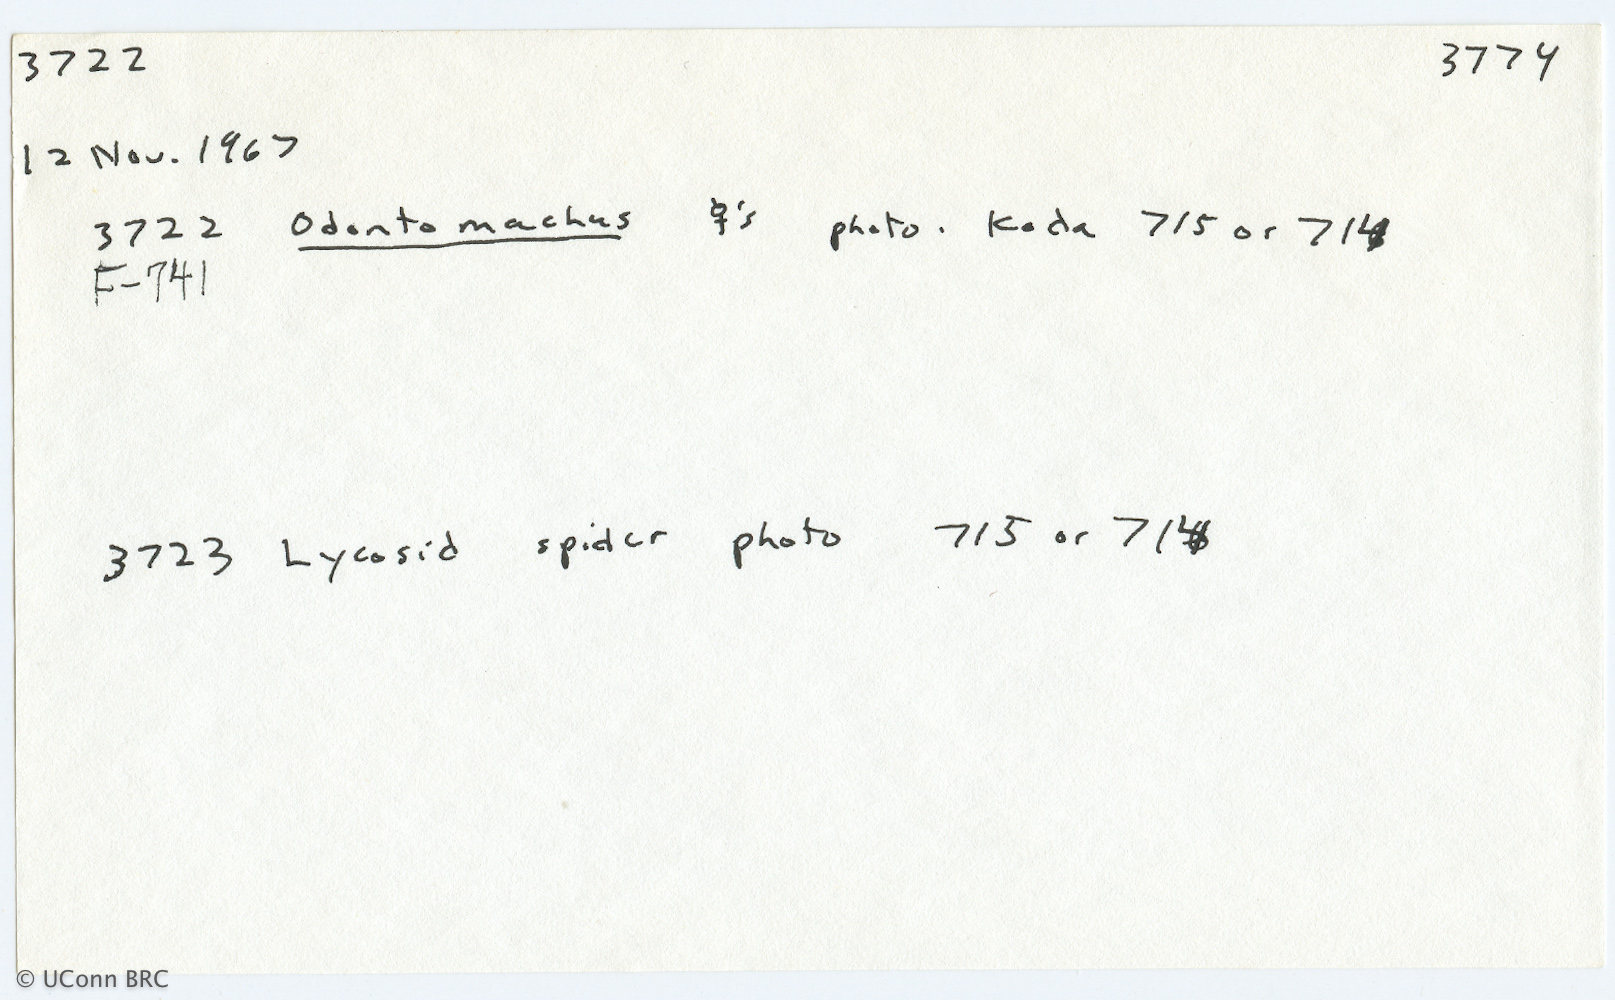 3722 3774
12 Nov. 1967
3722 Odontomachus ☿'s photo. Koda 715 or 714
F-741
3723 Lycosid spider photo 715 or 714
© UConn BRC